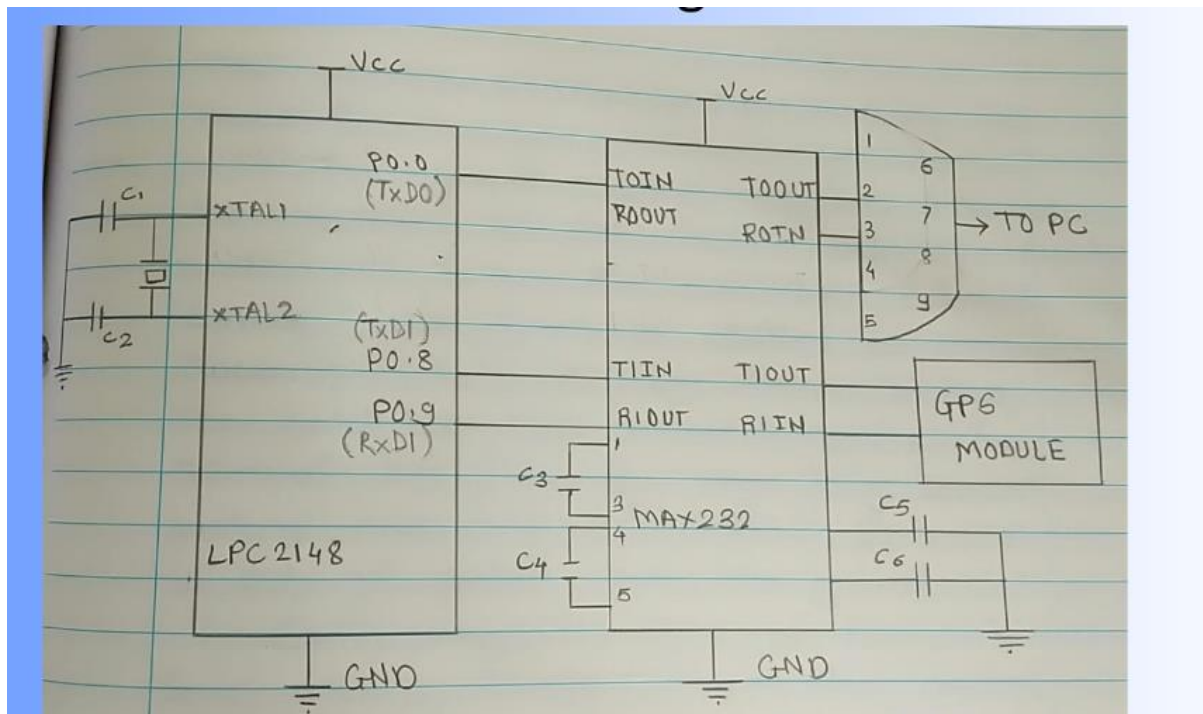 Vcc
Vcc
P0.0
(TxD0)
XTAL1
C1
XTAL2
C2
(TxD1)
P0.8
P0.9
(RxD1)
LPC2148
GND
T0IN
R0OUT
T0OUT
R0IN
T1IN
T1OUT
R1OUT
R1IN
1
3
4
5
C3
C4
MAX232
GND
1
2
3
4
5
6
7
8
9
TO PC
GPS
MODULE
C5
C6